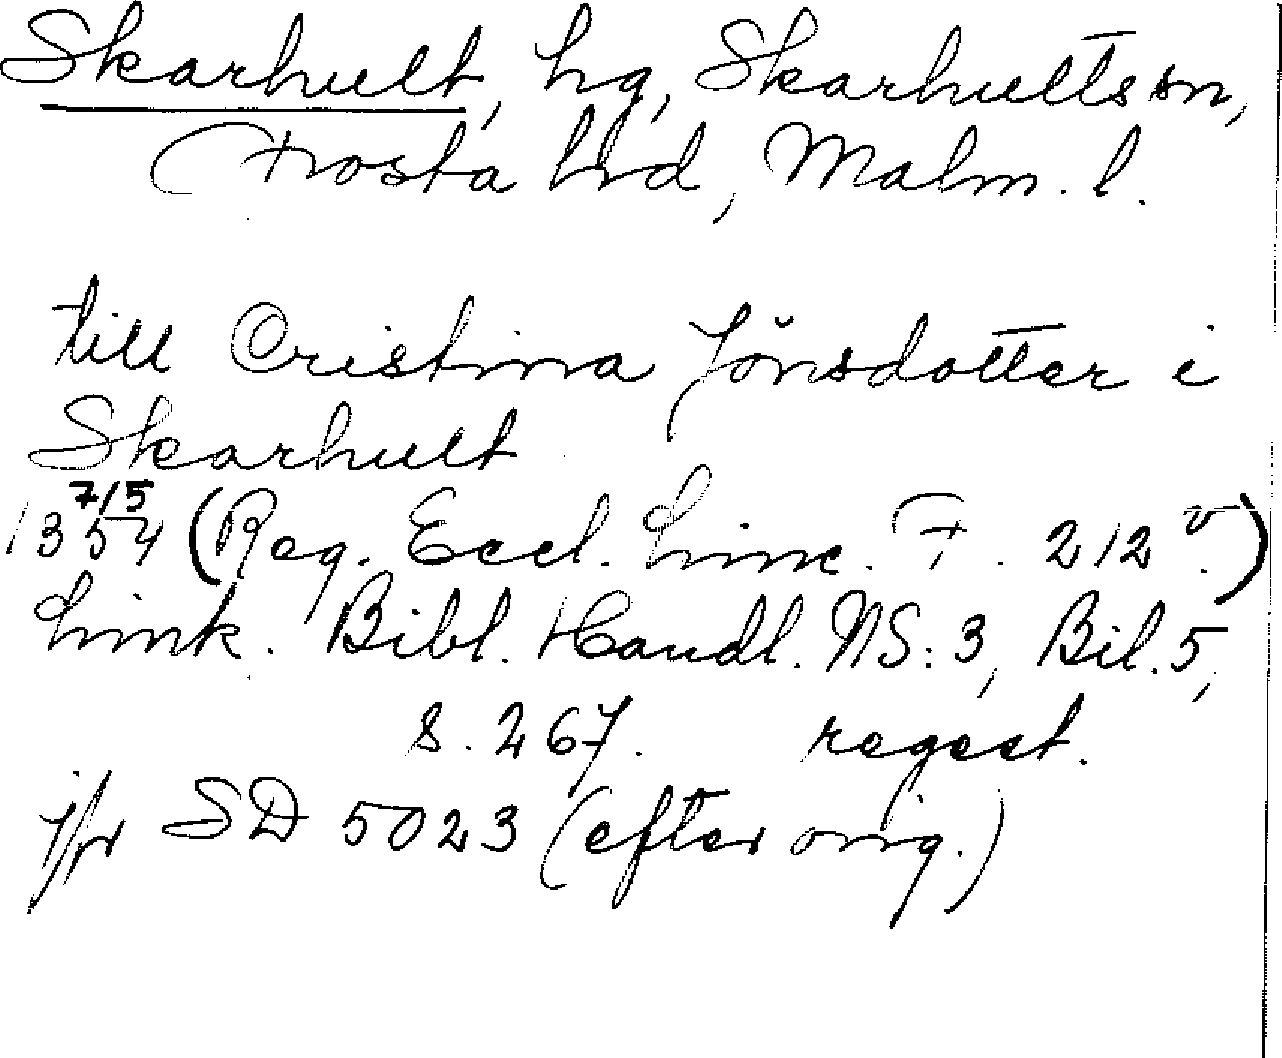 Skarhult, hg, Skarhults sn,
Frosta hd, Malm. l.
till Cristina Jönsdotter i
Skarhult
1354 7/5 (Reg. Eccl. Linc. F. 212 v.)
Link. Bibl. Handl. NS: 3, Bil. 5,
s. 267. regest.
jfr SD 5023 (efter orig.)